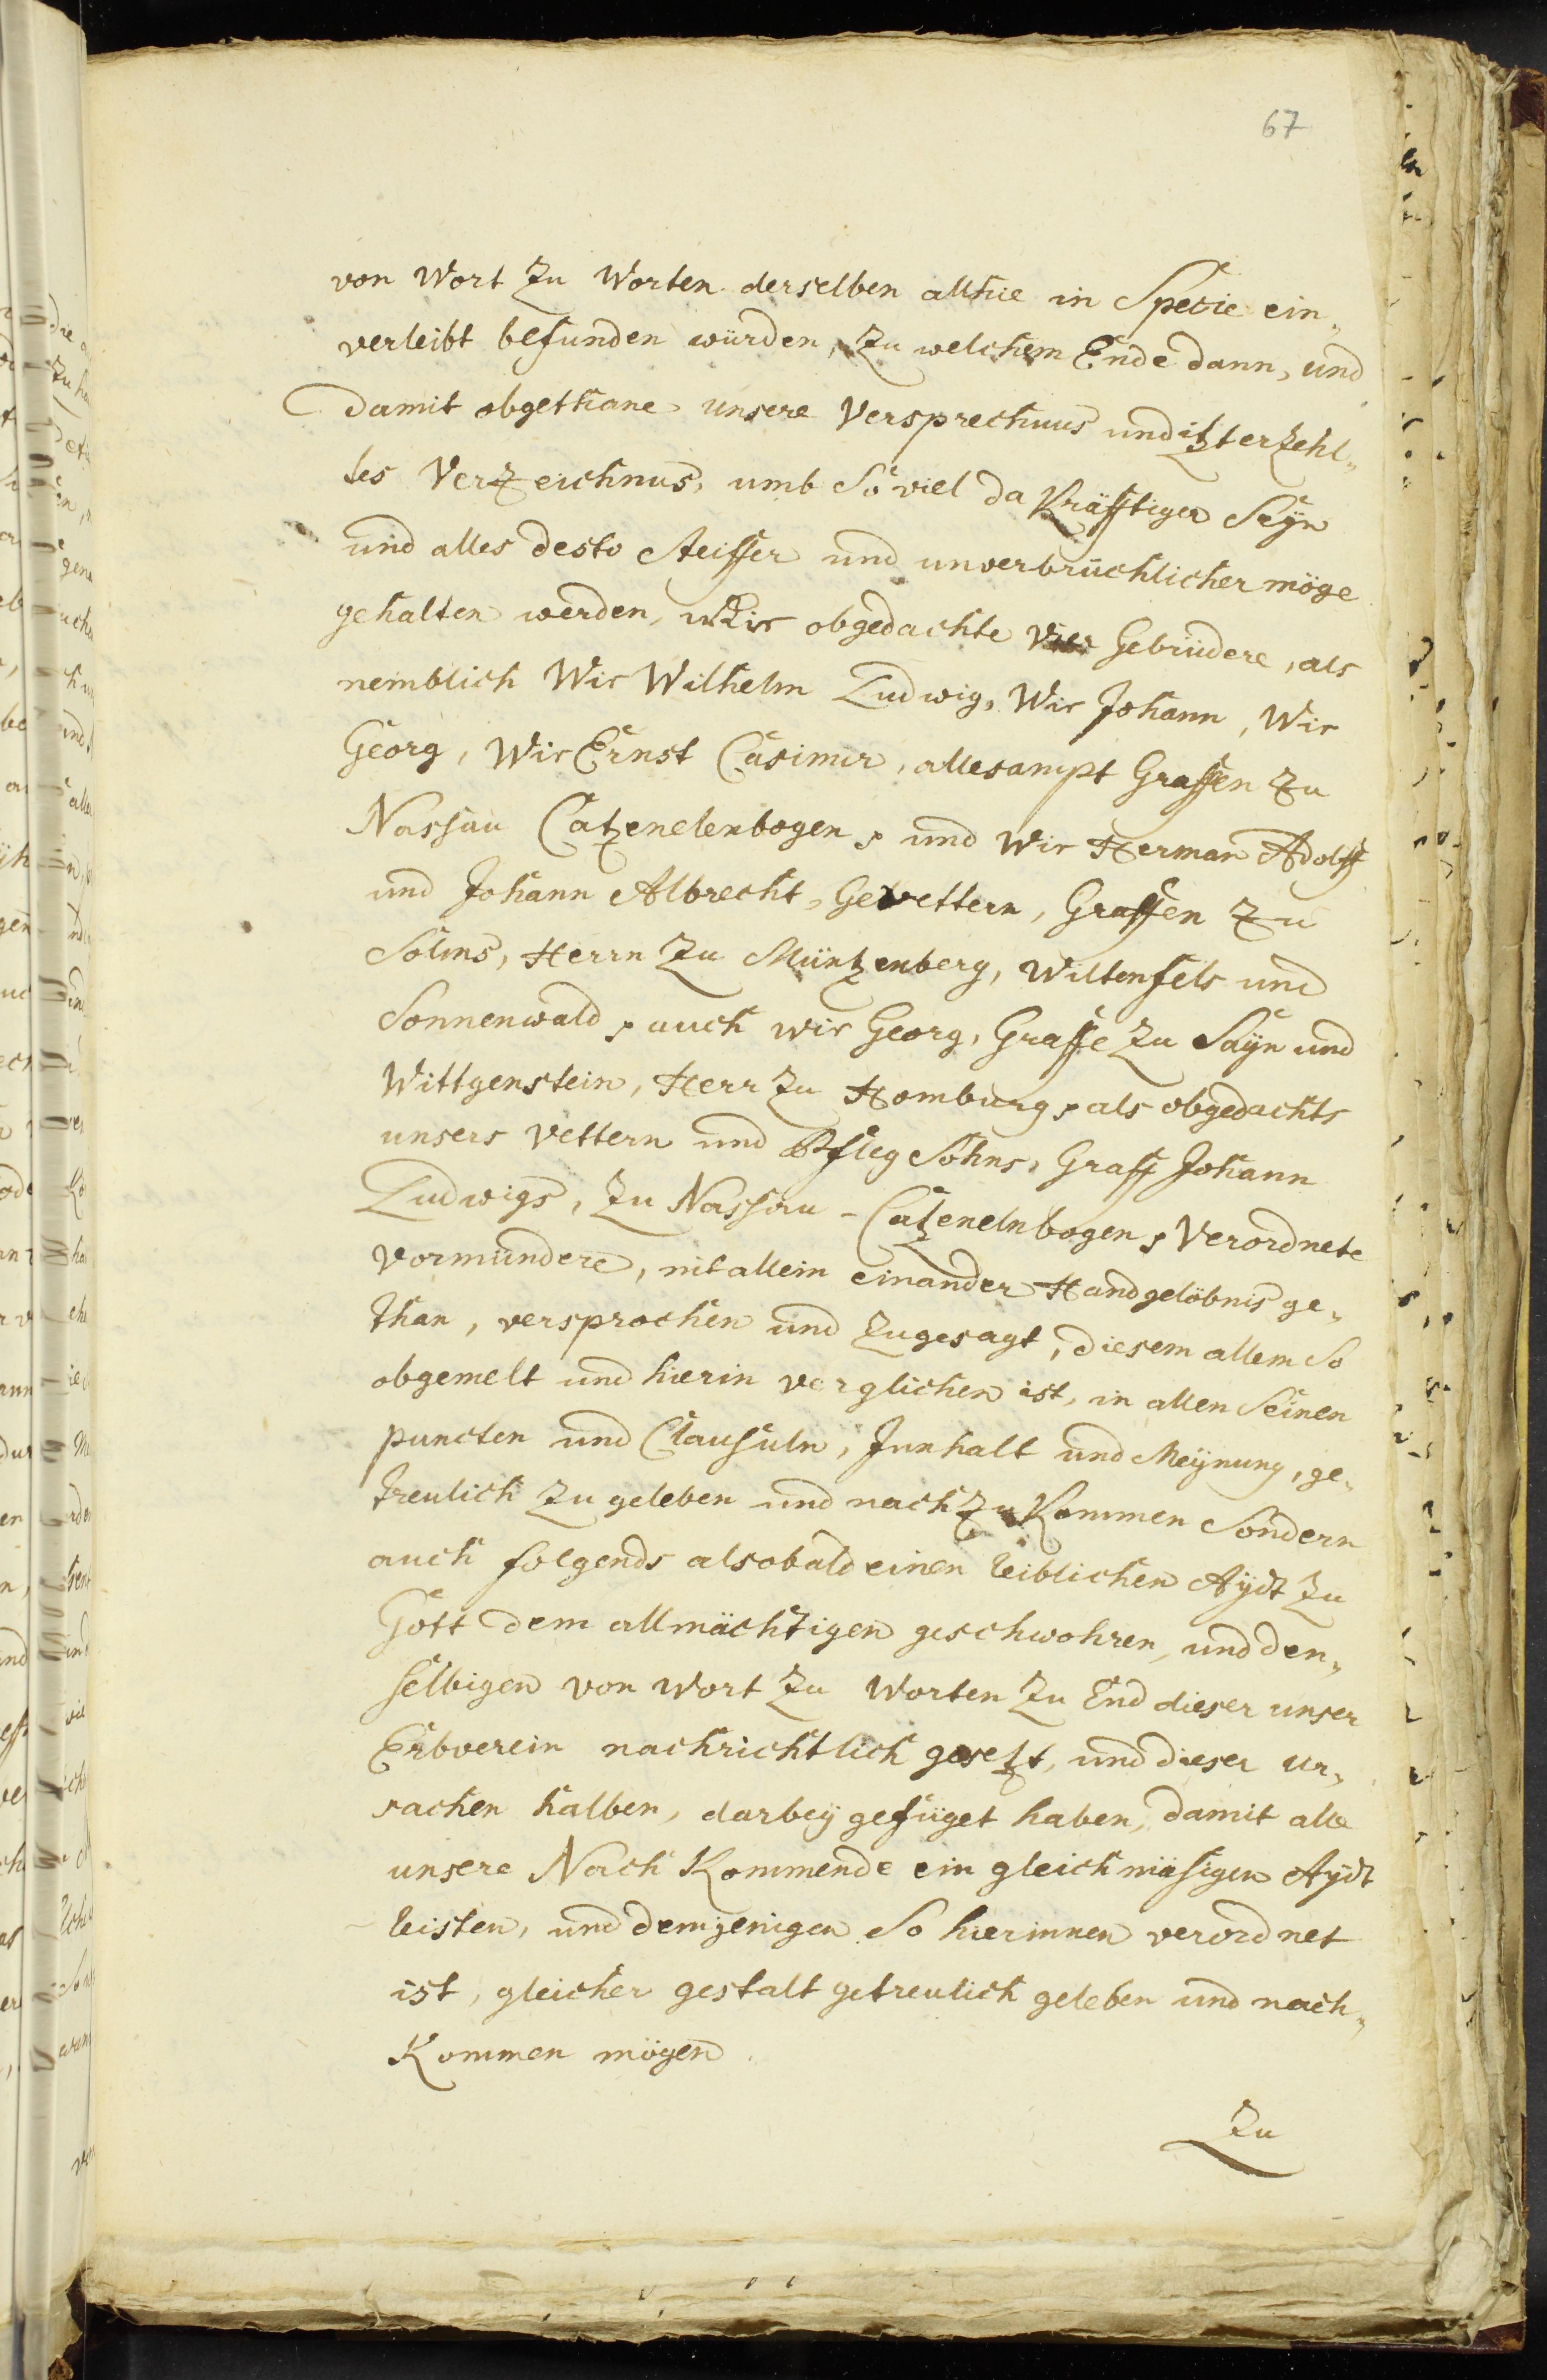 67
von Wort Zu Worten derselben allhie in Specie ein„
verleibt befunden würden, Zu welchem Ende dann, und
damit obgethane unsere Versprechnus und itzt erzehl„
tes Verzeichnus, umb So viel da Kräfftiger Seÿn
und alles desto Steiffer und unverbrüchlicher möge
gehalten werden, Wir obgedachte Vier Gebrüdere, als
nemblich Wir Wilhelm Ludwig, Wir Johann, Wir
Georg, Wir Ernst Casimir, allesampt Graffen Zu
Nassau Catzenelenbogen, und Wir Herman Adolff
und Johann Albrecht, Gevettern, Graffen Zu
Solms, Herrn Zu Müntzenberg, Wiltenfels und
Sonnenwald, auch wir Georg, Graffe Zu Saÿn und
Wittgenstein, Herr Zu Homburg, als obgedachts
unsers Vettern und Pfleg Sohns, Graff Johann
Ludwigs, Zu Nassau-Catzenelnbogen, Verordnete
Vormündere, nit allein einander Handgelöbnis ge„
than, versprochen und Zugesagt, diesem allem So
obgemelt und hierin verglichen ist, in allen Seinen
puncten und Clausuln, Innhalt und Meÿnung, ge„
treulich Zu geleben und nach Zu Kommen Sondern
auch folgends alsobald einen leiblichen Aÿdt Zu
Gott dem allmächtigen geschwohren, und den„
selbigen von Wort Zu Worten Zu End dieser unser
Erbverein nachrichtlich gesetzt, und dieser ur„
sachen halben, darbeÿ gefüget haben, damit alle
unsere Nach Kommende ein gleichmäsigen Aÿdt
leisten, und demjenigen So hierinnen verordnet
ist, gleicher gestalt getreulich geleben und nach„
Kommen mögen.
Zu